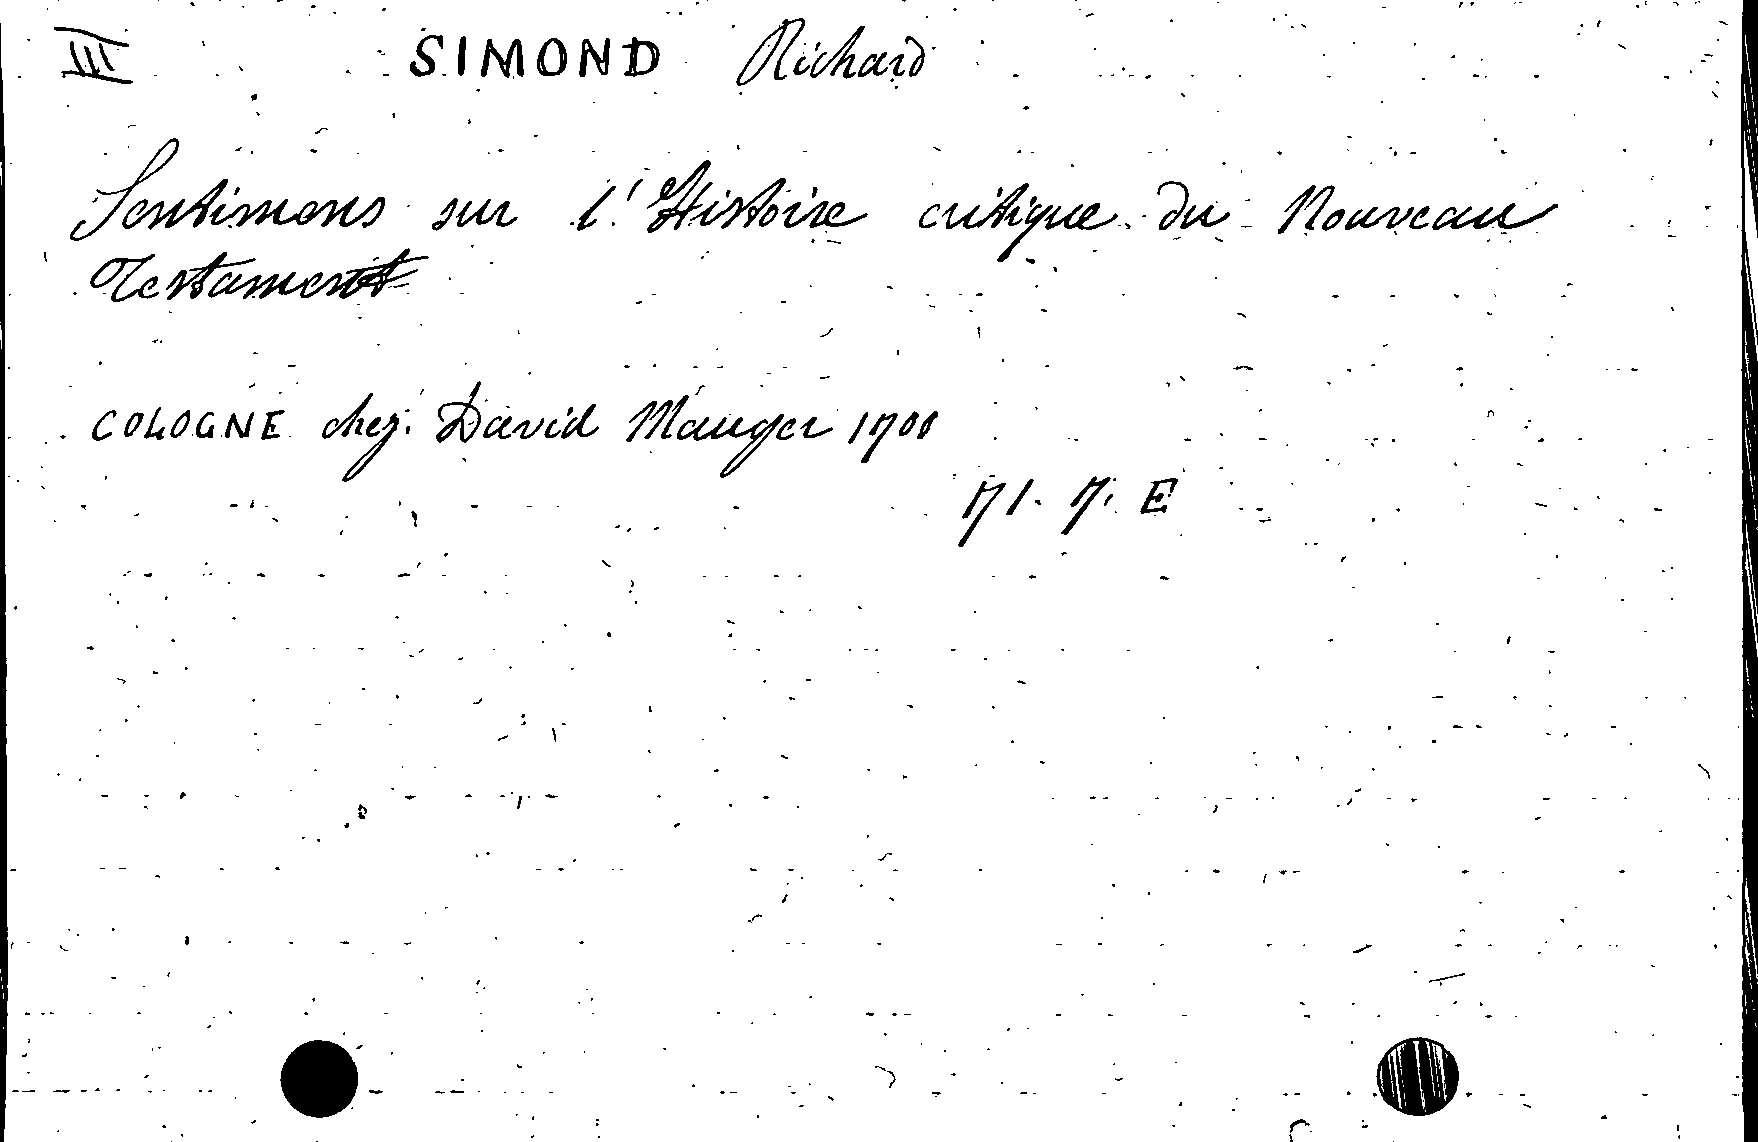 III SIMOND Richard
Sentimens sur l'Histoire critique du Nouveau
Testament
COLOGNE chez. David Mauger 1700
171. 7. E